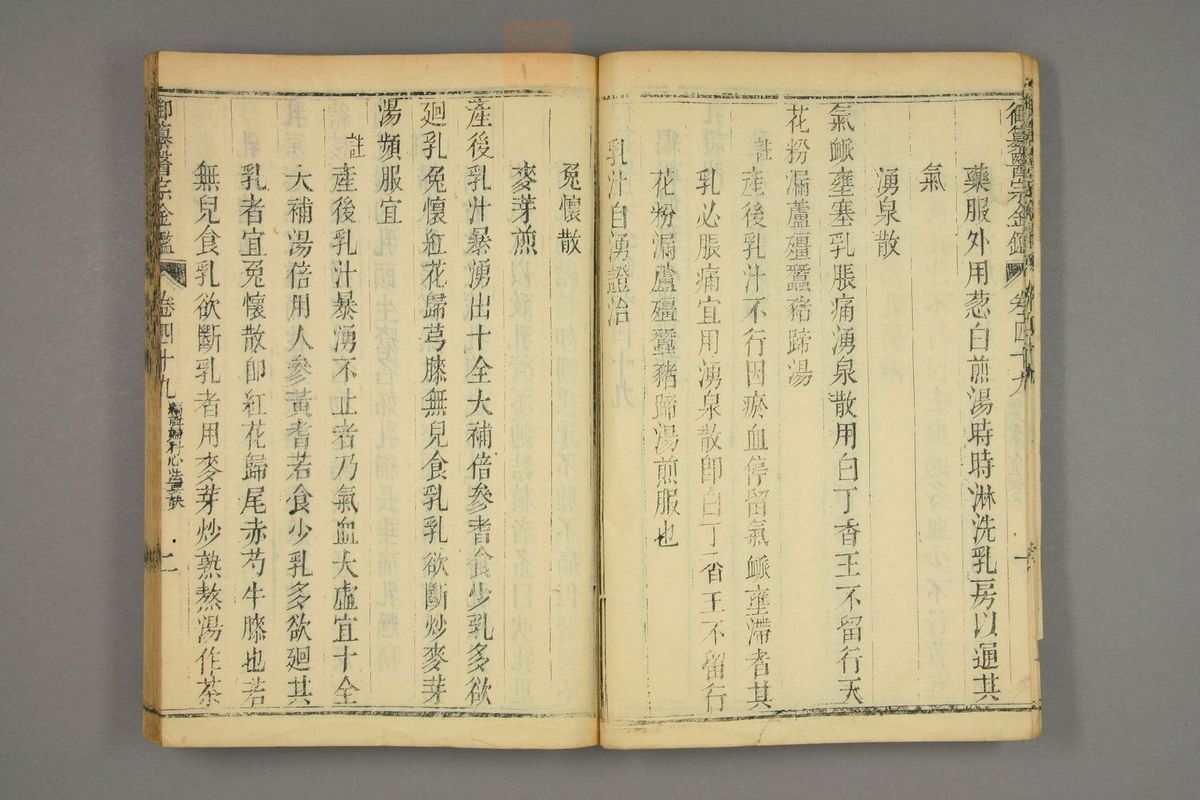 御纂醫宗金鑑 卷四十九 一
藥服外用葱白煎湯時時淋洗乳房以通其
氣
湧泉散
氣䘑壅塞乳脹痛湧泉散用白丁香王不留行天
花粉漏蘆殭蠶豬蹄湯
註
產後乳汁不行因瘀血停留氣䘑壅滯者其
乳必脹痛宜用湧泉散卽白丁香王不留行
花粉漏蘆殭蠶豬蹄湯煎服也
乳汁自湧證治
免懷散
麥芽煎
產後乳汁暴湧出十全大補倍參耆食少乳多欲
廻乳免懷紅花歸芎膝無兒食乳乳欲斷炒麥芽
湯頻服宜
註
產後乳汁暴湧不止者乃氣血大虛宜十全
大補湯倍用人參黃耆若食少乳多欲廻其
乳者宜免懷散卽紅花歸尾赤芍牛膝也若
無兒食乳欲斷乳者用麥芽炒熟熬湯作茶
御纂醫宗金鑑 卷四十九 編註婦科心法要訣 二